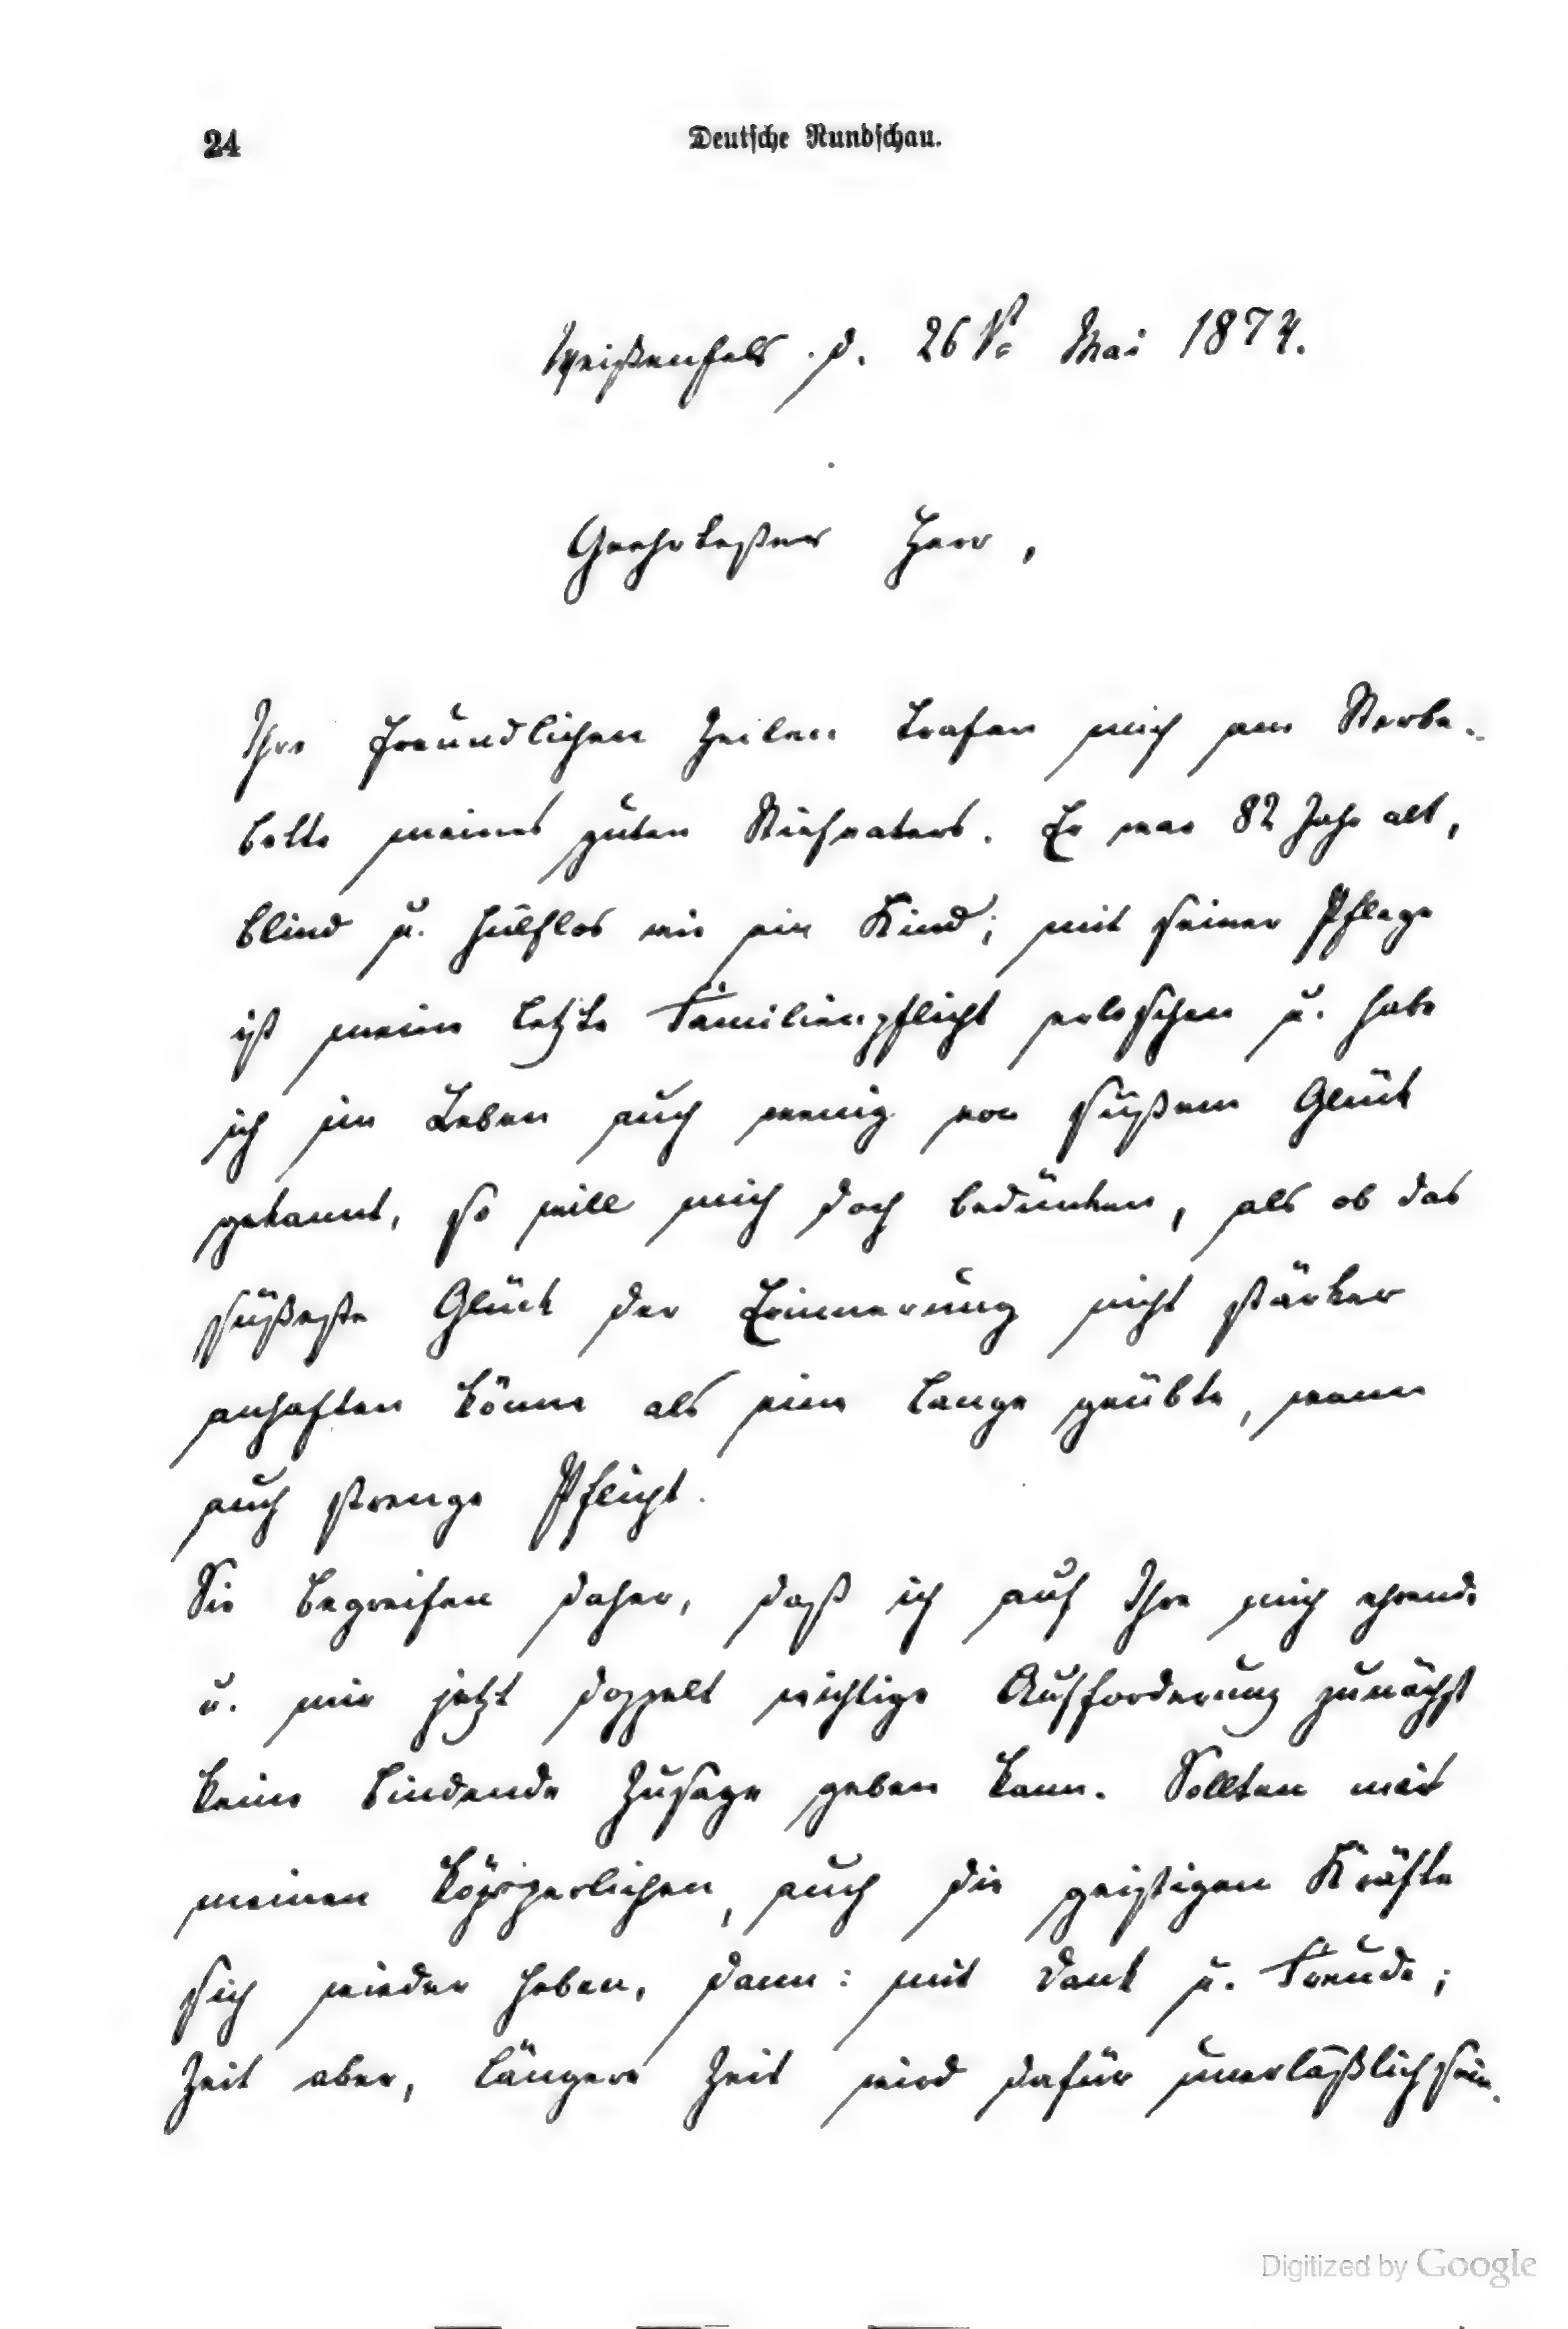 24
Deutsche Rundschau.
Weißenfels d. 26st Mai 1874.
Geehrtester Herr,
Ihre freundlichen Zeilen trafen mich am Sterbe-
bette meines guten Stiefvaters. Er war 82 Jahr alt,
blind u. hülflos wie ein Kind; mit seiner Pflege
ist meine letzte Familienpflicht erloschen u. habe
ich im Leben auch wenig von süßem Glück
gekannt, so will mich doch bedünken, als ob das
süßeste Glück der Erinnerung nicht stärker
anhaften könne als eine lange geübte, wenn
auch strenge Pflicht.
Sie begreifen daher, daß ich auf Ihre mich ehrende
u. mir jetzt doppelt wichtige Aufforderung zunächst
keine bindende Zusage geben kann. Sollten mit
meinen körperlichen, auch die geistigen Kräfte
sich wieder heben, dann: mit Dank u. Freude;
Zeit aber, längere Zeit wird dafür unerläßlich sein.
Digitized by Google